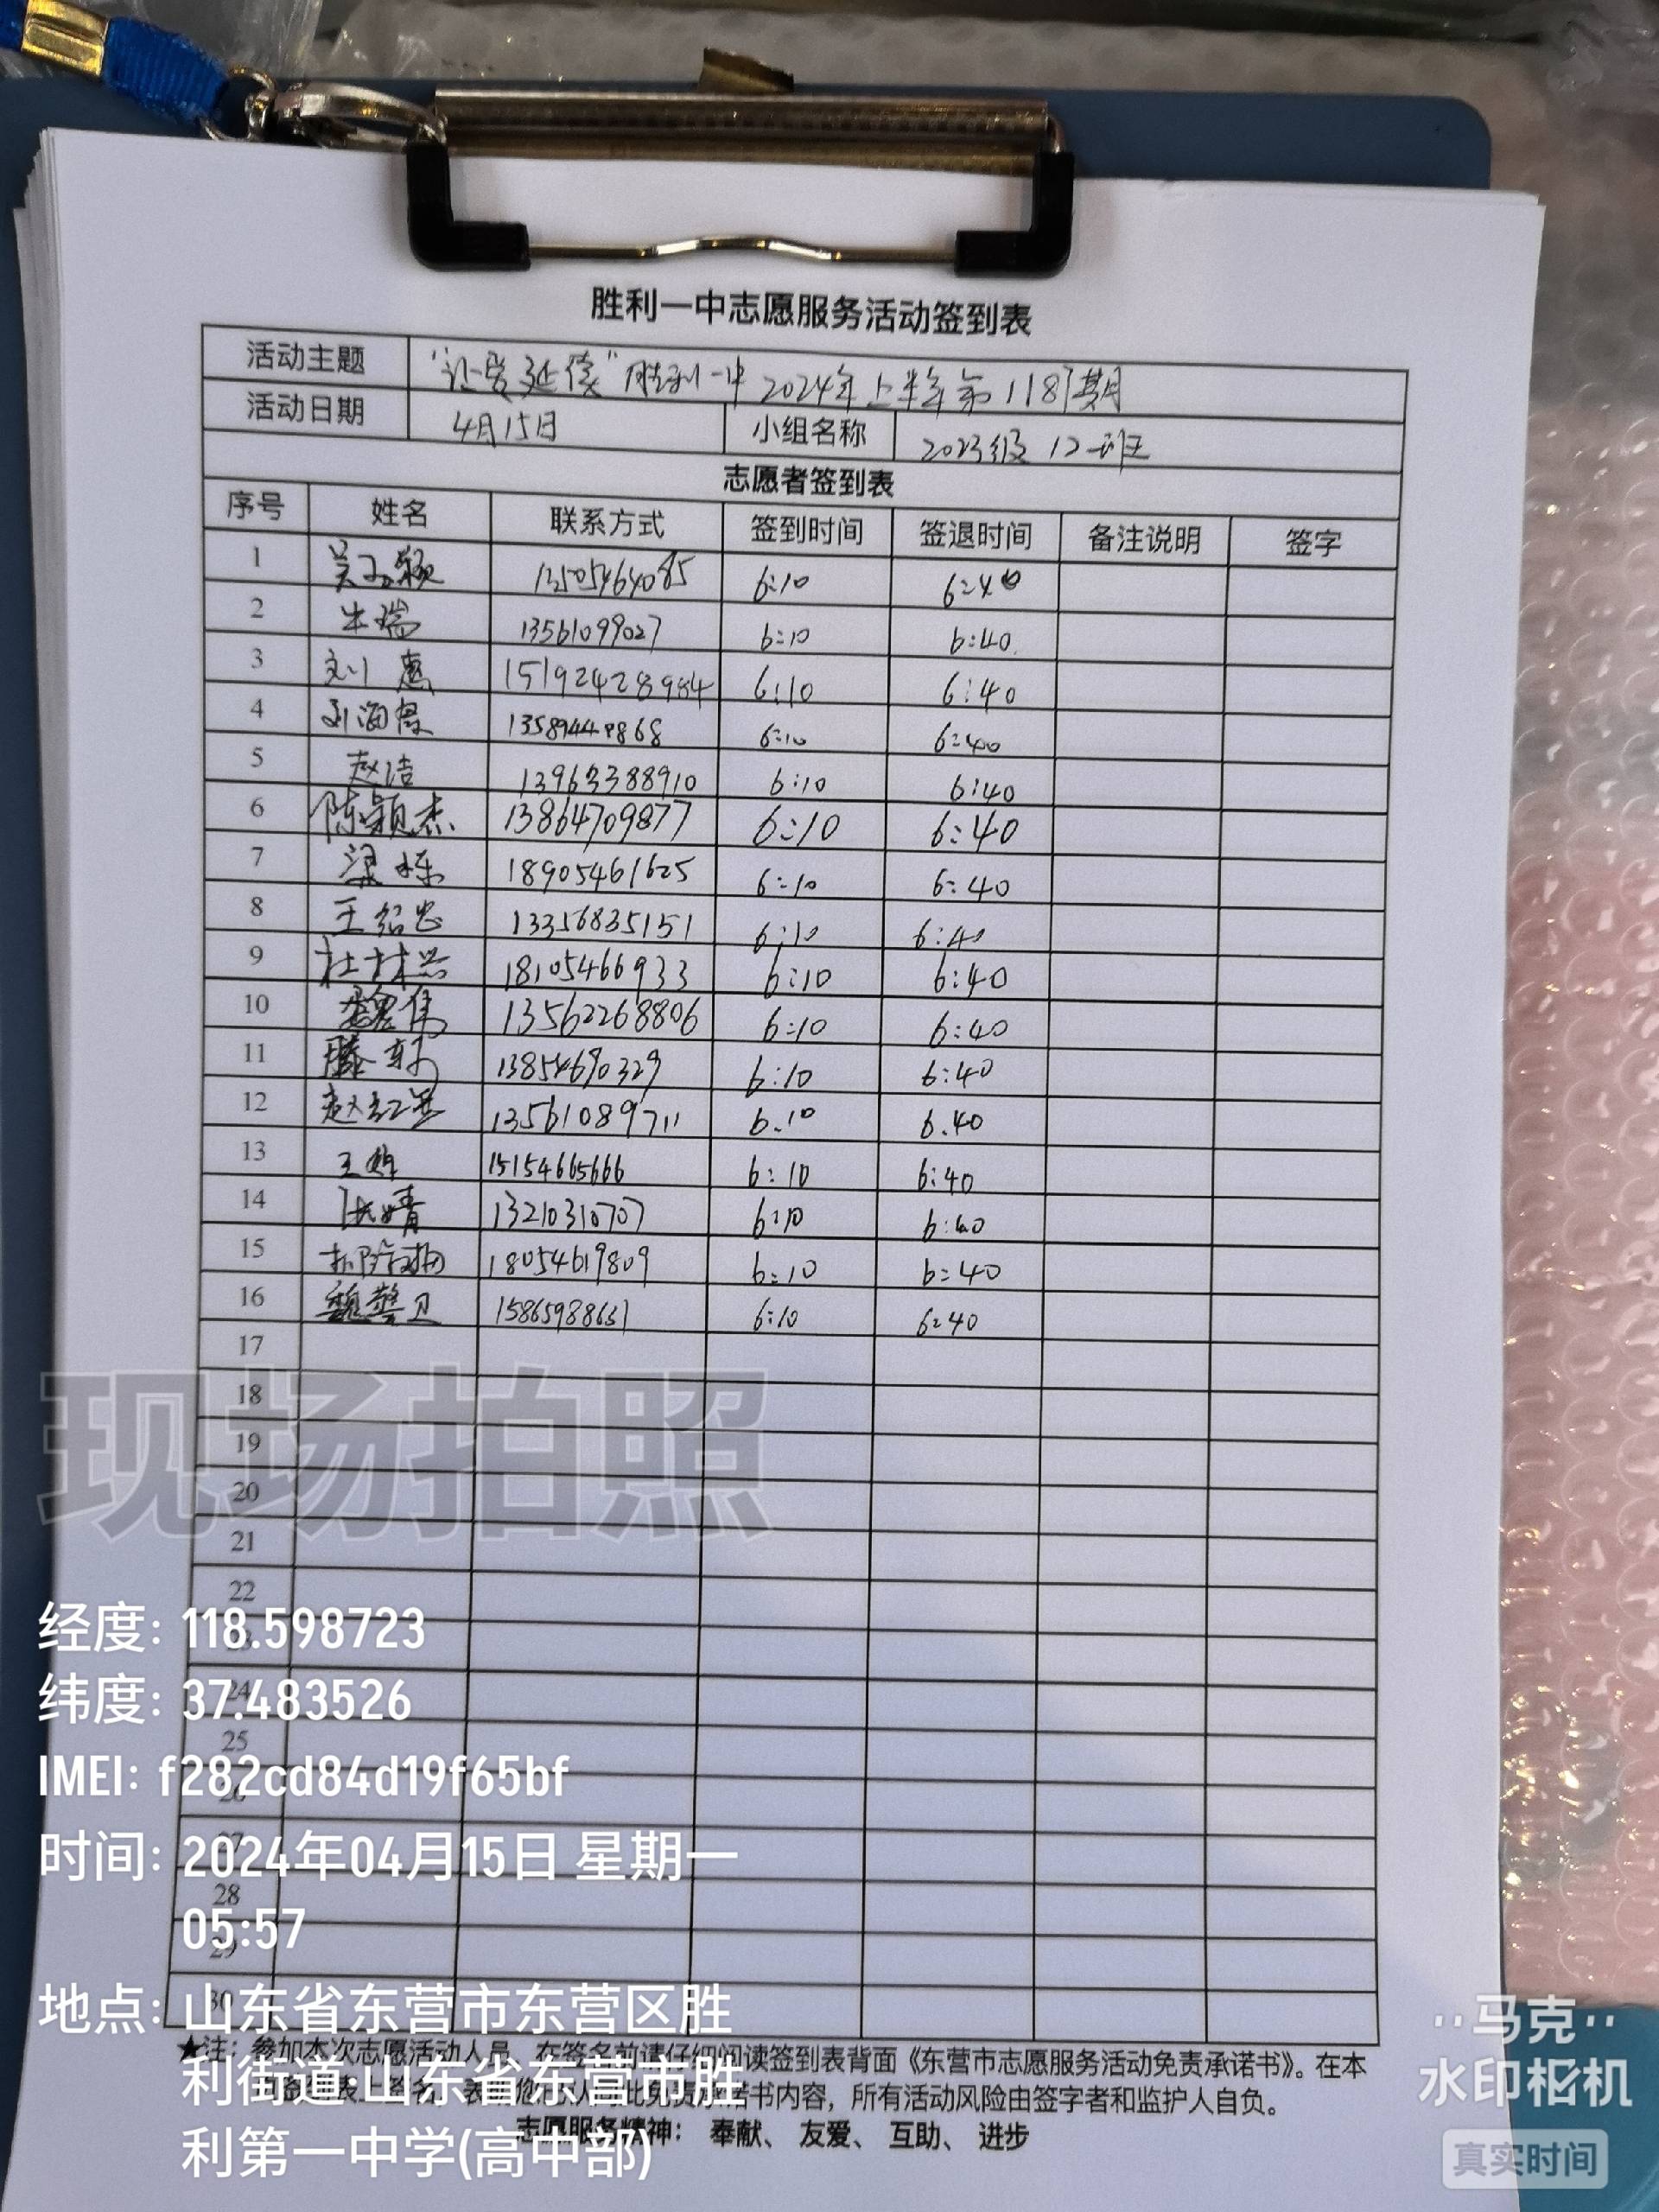 胜利一中志愿服务活动签到表
活动主题 “让爱延续”胜利一中2024年上半年第118期
活动日期 4月15日 小组名称 2023级12班
志愿者签到表
序号 姓名 联系方式 签到时间 签退时间 备注说明 签字
1 13505464085 6:10 6:40
2 朱瑞 13561099027 6:10 6:40
3 刘惠 15192428984 6:10 6:40
4 刘海 6:10 6:40
5 赵洁 13963388910 6:10 6:40
6 陈颖杰 13864709877 6:10 6:40
7 梁栋 18905461625 6:10 6:40
8 王绍忠 13356835151 6:10 6:40
9 杜林 18105466933 6:10 6:40
10 魏伟 13562268806 6:10 6:40
11 滕 13854690329 6:10 6:40
12 赵红 13561089711 6.10 6.40
13 王 15154665666 6:10 6:40
14 张婧 13210310707 6:10 6:40
15 18054619809 6:10 6:40
16 魏警卫 15865988631 6:10 6:40
17
18
19
20
21
22
23
24
25
26
27
28
29
30
现场拍照
经度: 118.598723
纬度: 37.483526
IMEI: f282cd84d19f65bf
时间: 2024年04月15日 星期一
05:57
地点: 山东省东营市东营区胜
利街道·山东省东营市胜
利第一中学(高中部)
★注：参加本次志愿活动人员，在签名前请仔细阅读签到表背面《东营市志愿服务活动免责承诺书》。在本
书内容，所有活动风险由签字者和监护人自负。
志愿服务精神： 奉献、 友爱、 互助、 进步
马克
水印相机
真实时间